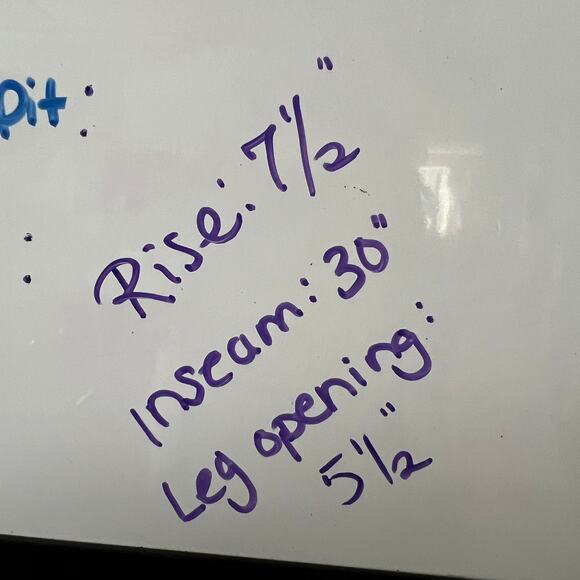 pit:
:
Rise: 7 1/2"
Inseam: 30"
Leg opening:
5 1/2"